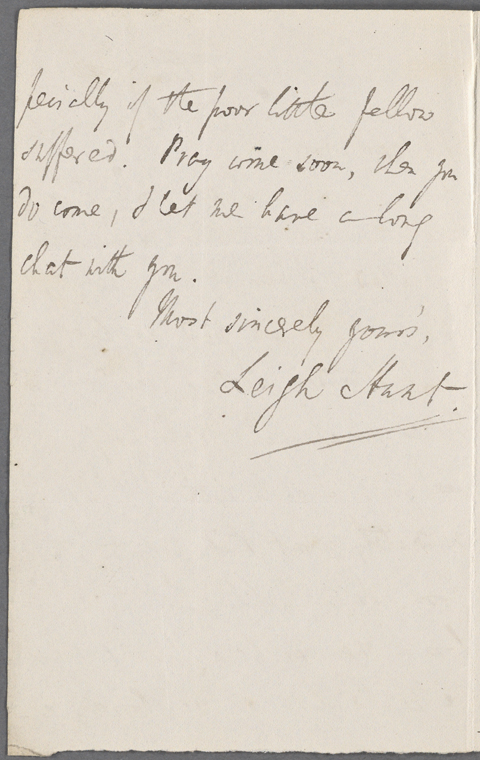 pecially if the poor little fellow
suffered. Pray come soon, when you
do come, & let me have a long
chat with you.
Most sincerely yours,
Leigh Hunt.